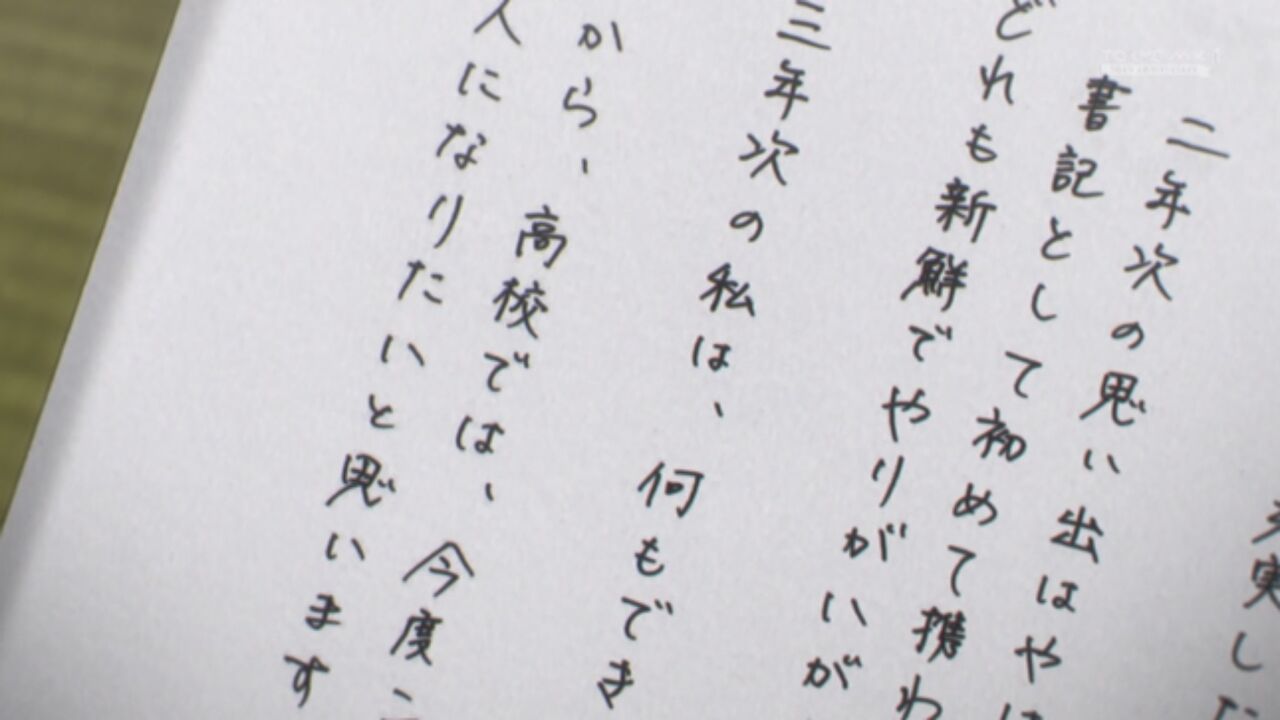 実した
二年次の思い出はやは
書記として初めて携わ
どれも新鮮でやりがいが
三年次の私は、何もでき
から、高校では、今度こ
人になりたいと思います